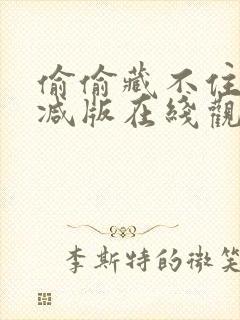 偷偷藏不住
减版在綫觀
李斯特的微笑